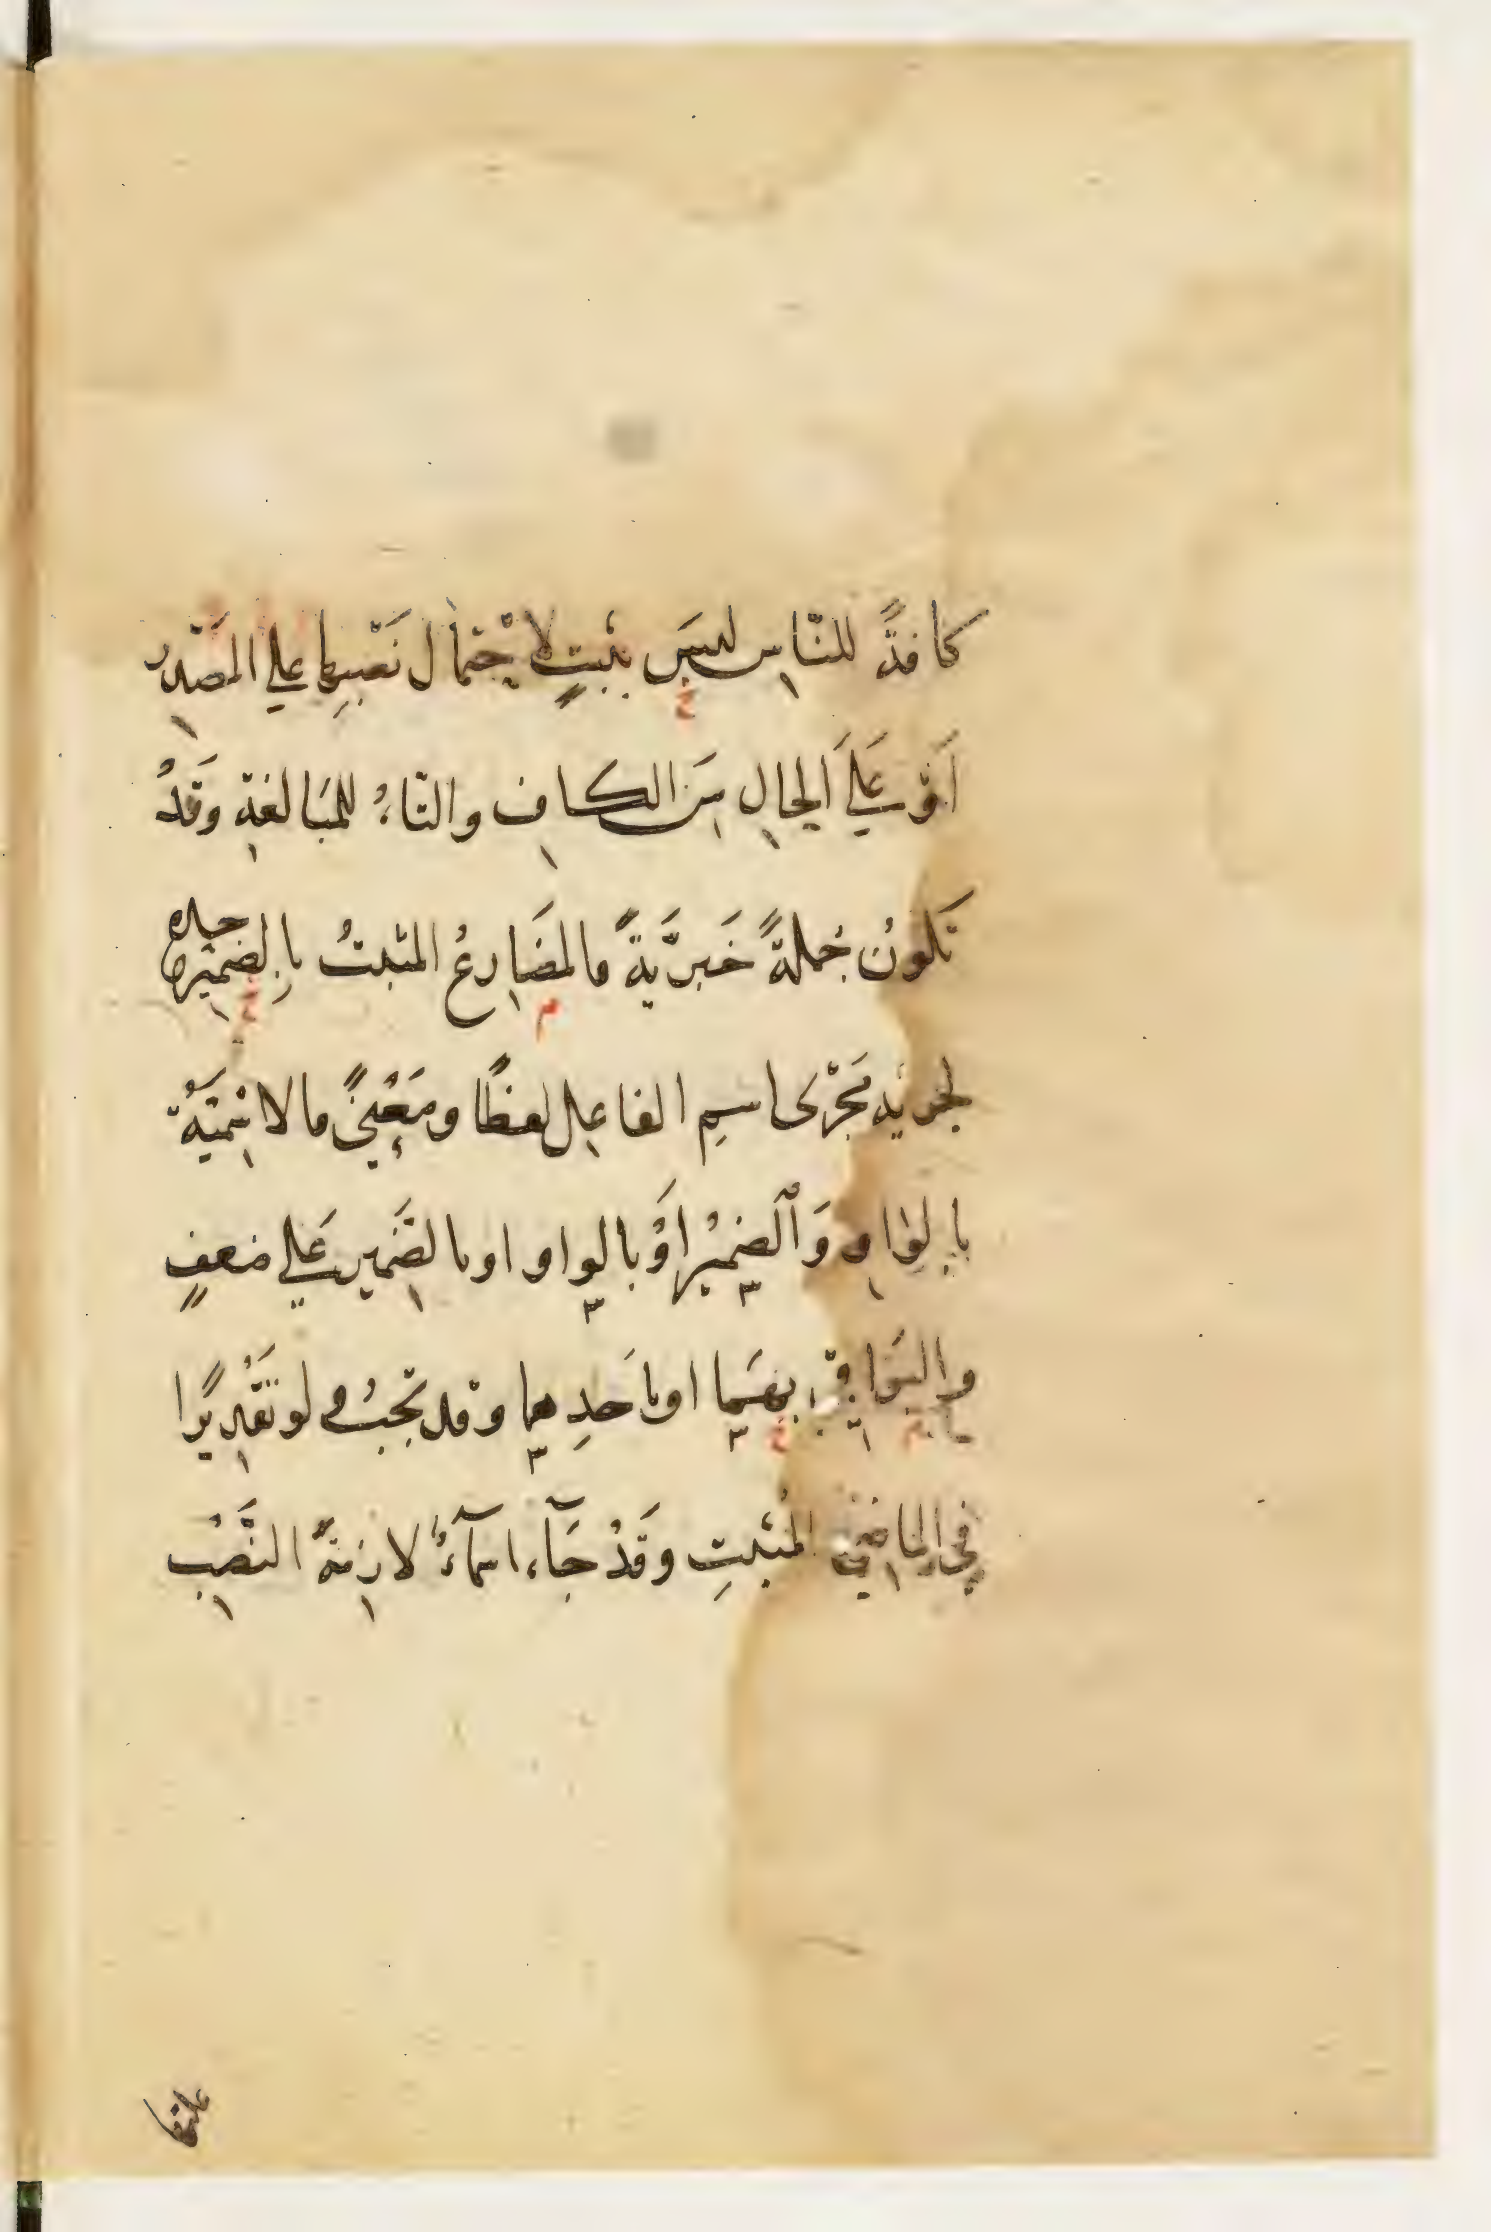 كافةً للنّاسِ ليسَ بثبتٍ لاحْتمال نَصْبِها على المصْدَرِ
أوْ علَى الحالِ مِنَ الكافِ والتّاءُ للمبَالغةِ وقَدْ
تَكونُ جُملةً خَبريَّةً فالمضَارعُ المثبتُ بِالضميرِ وحده
لجريه مَجْرَى اسمِ الفاعِل لفظًا ومَعْنىً فالاسْميَّةُ
بالواوِ وَالضميرِ أوْ بالواو او بالضَّمير عَلى ضعفٍ
والبَوَاقِي بهمَا او باَحَدِهما وقد تجبُ قد لو تَقْديرًا
في الماضي المثبتِ وقَدْ جَآءَ اسمآءُ لازمَةُ النَّصْبِ
عليها